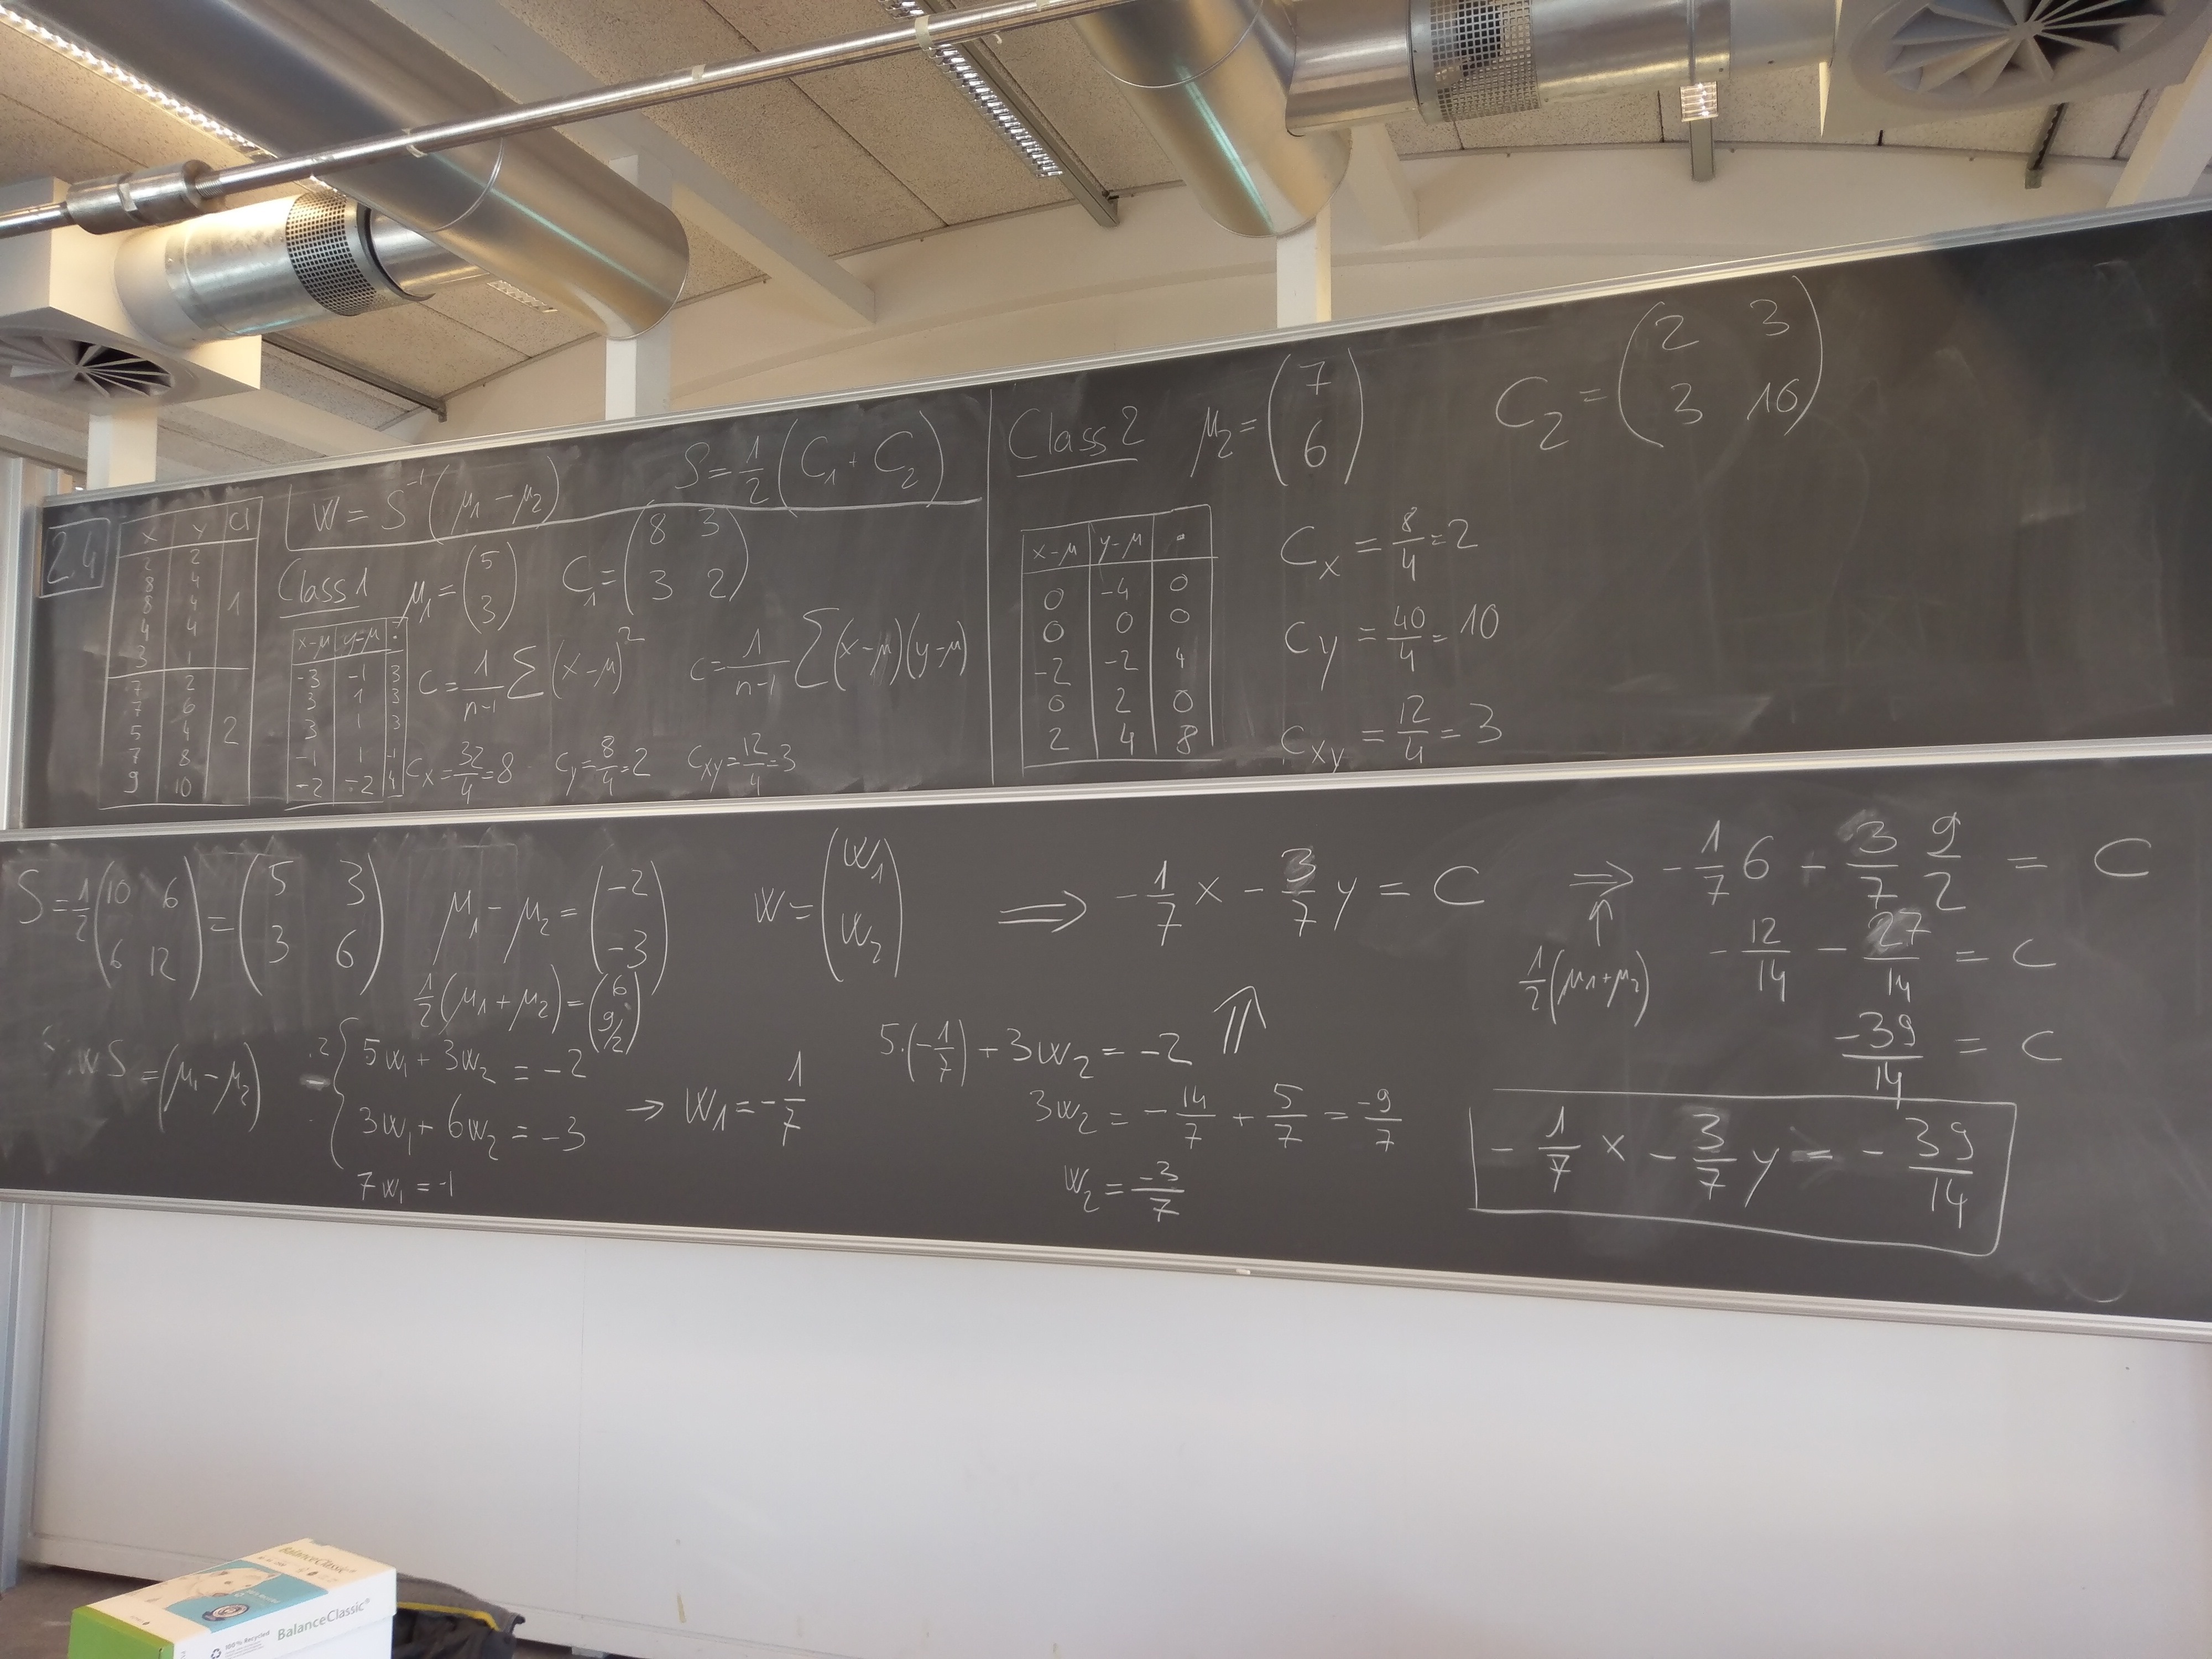 2.4
x y Cl
2 2
8 4
8 4 1
4 4
3 1
7 2
7 6
5 4 2
7 8
9 10
W = S⁻¹(μ₁ − μ₂) S = 1/2 (C₁ + C₂)
Class 1 μ₁ = (5 3) C₁ = (8 3 3 2)
x−μ y−μ ·
-3 -1 3
3 1 3
3 1 3
-1 1 -1
-2 -2 4
C = 1/(n-1) Σ(x−μ)² C = 1/(n-1) Σ(x−μ)(y−μ)
Cx = 32/4 = 8 Cy = 8/4 = 2 Cxy = 12/4 = 3
Class 2 μ₂ = (7 6) C₂ = (2 3 3 10)
x−μ y−μ ·
0 -4 0
0 0 0
-2 -2 4
0 2 0
2 4 8
Cx = 8/4 = 2
Cy = 40/4 = 10
Cxy = 12/4 = 3
S = 1/2 (10 6 6 12) = (5 3 3 6) μ₁ − μ₂ = (-2 -3) W = (W₁ W₂)
1/2 (μ₁ + μ₂) = (6 9/2)
wS = (μ₁ − μ₂)
·2 5w₁ + 3w₂ = -2
− 3w₁ + 6w₂ = -3
7w₁ = -1
→ W₁ = -1/7
5·(-1/7) + 3w₂ = -2 ⇑
3w₂ = -14/7 + 5/7 = -9/7
W₂ = -3/7
⇒ -1/7 x - 3/7 y = C
⇒ -1/7 6 - 3/7 9/2 = C
↑
1/2 (μ₁+μ₂)
-12/14 - 27/14 = C
-39/14 = C
-1/7 x - 3/7 y = -39/14
BalanceClassic®
100% Recycled
BalanceClassic®